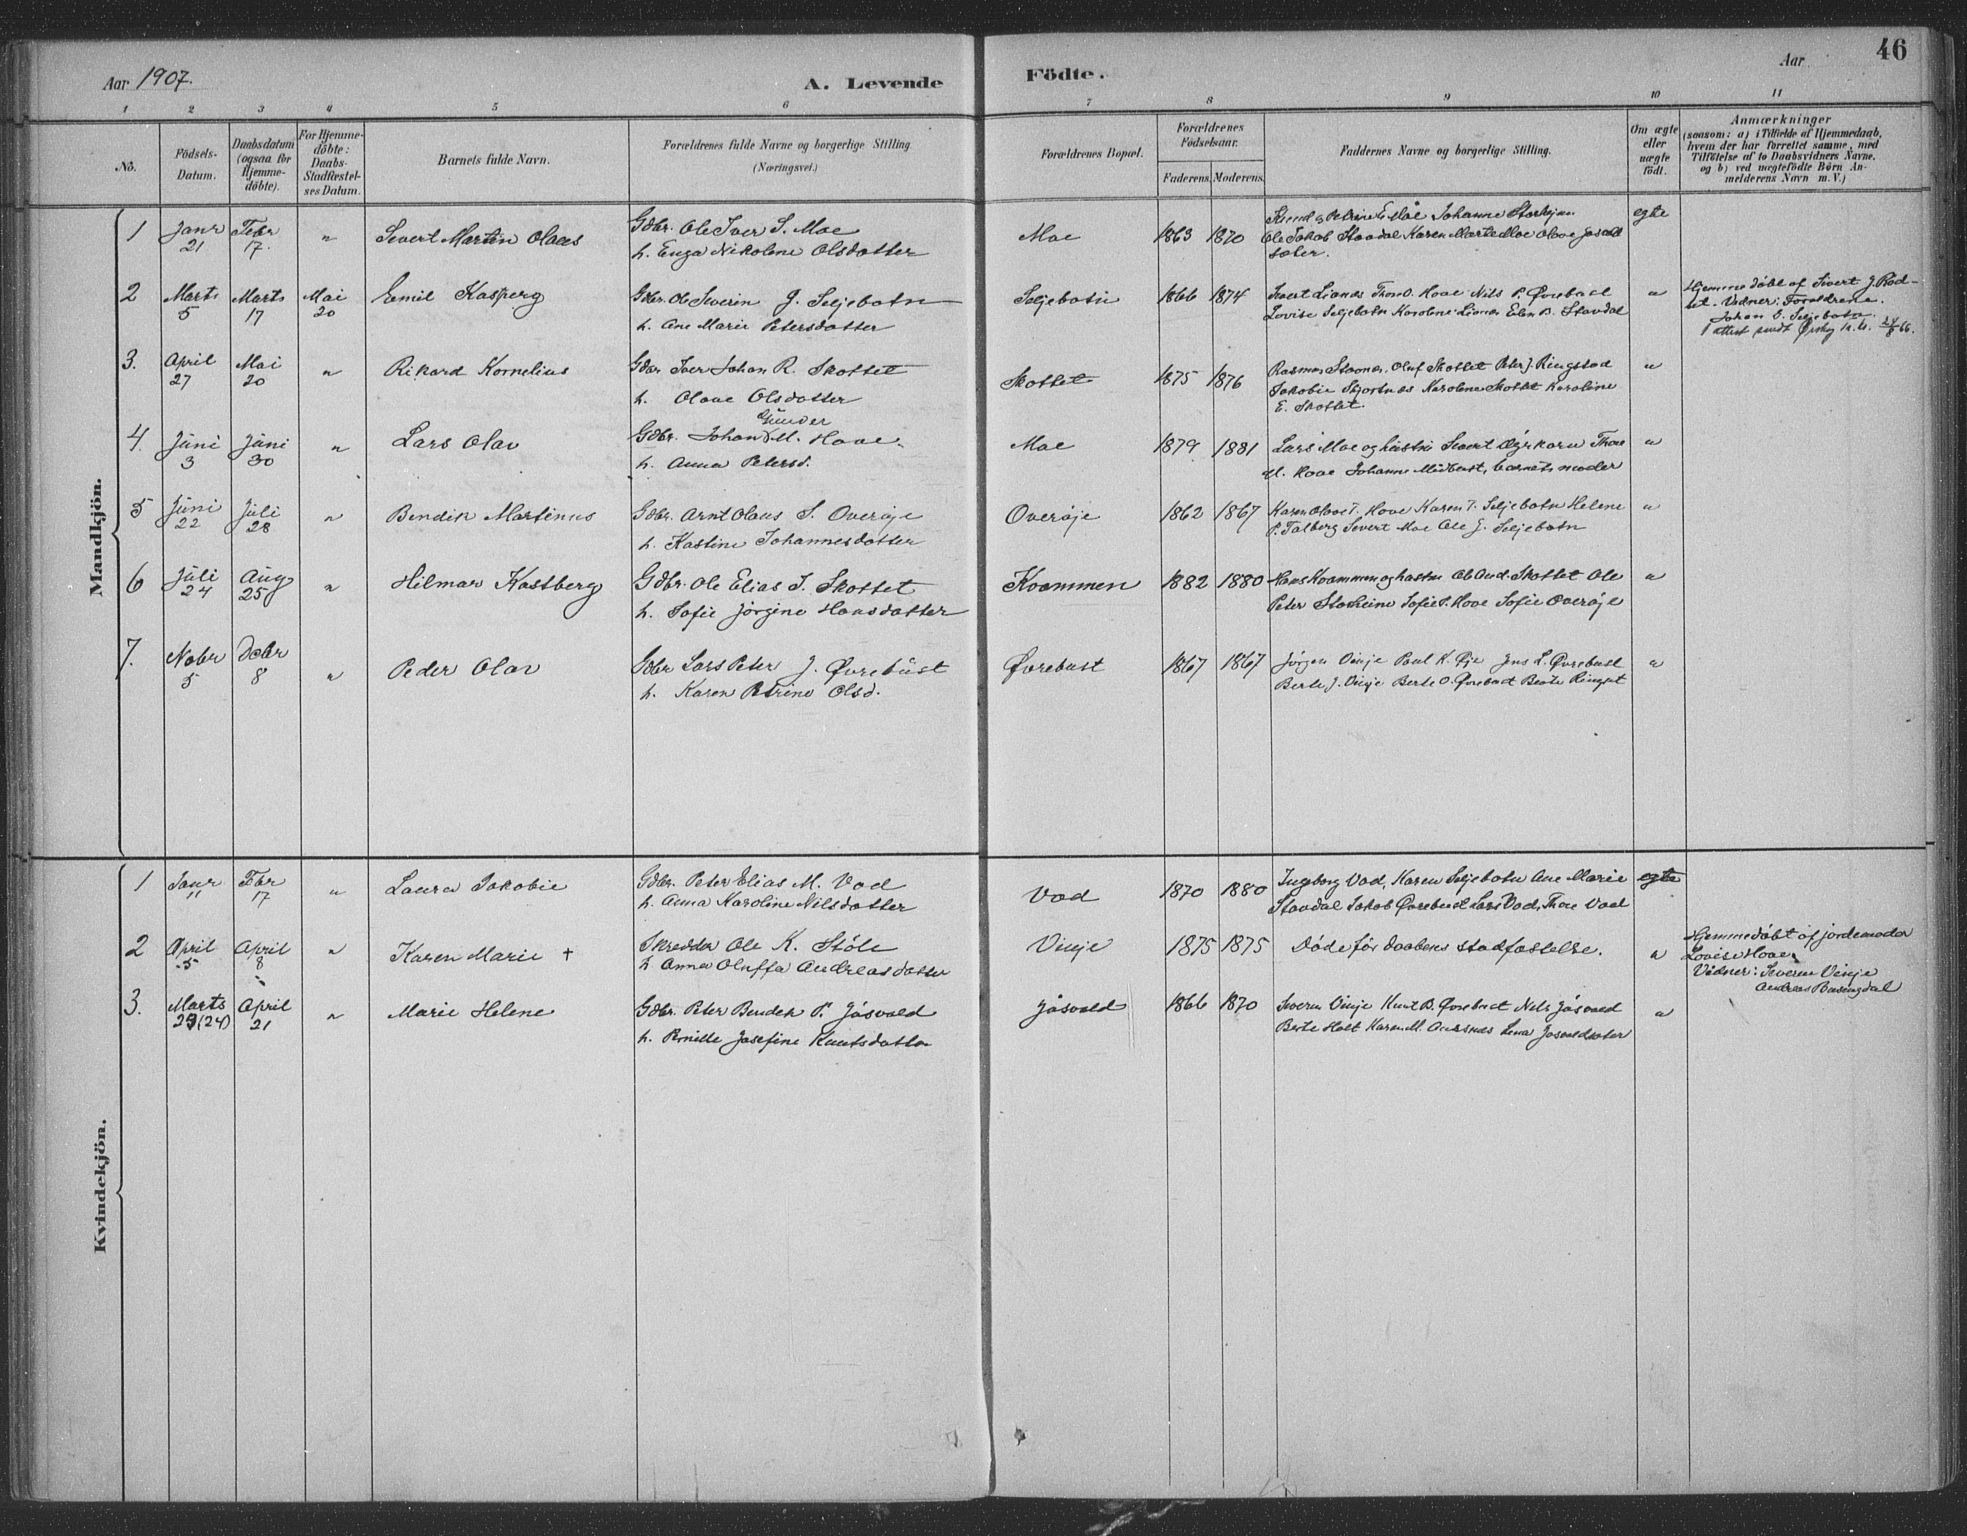 Aar 1907.
A. Levende
Födte.
Aar
46
1 2 3 4 5 6 7 8 9 10 11
No.
Födsels-
Datum.
Daabsdatum
(ogsaa for
Hjemme-
döbte).
For Hjemme-
döbte:
Daabs-
Stadfæstel-
ses Datum.
Barnets fulde Navn.
Forældrenes fulde Navne og borgerlige Stilling
(Næringsvei.)
Forældrenes Bopæl.
Forældrenes
Födselsaar.
Faderens. Moderens.
Faddernes Navne og borgerlige Stilling.
Om ægte
eller
uægte
födt.
Anmærkninger
(saasom: a) i Tilfælde af Hjemmedaab,
hvem der har forrettet samme, med
Tilföielse af to Daabsvidners Navne,
og b) ved uægtefödte Börn An-
melderens Navn m. V.)
Mandkjön.
1 Janr 21 Febr 17. " Severt Martin Olaus
Gdbr. Ole Iver S. Moe
h. Enga Nikoline Olsdatter
Moe 1863 1870
Knud og Petrine E Moe Johanne Storheim
Ole Jakob Stavdal Karen Marte Moe Olave Jøsvold
sæter.
egte
2 Marts 5 Marts 17 Mai 20 Emil Kasperg
Gdbr. Ole Severin J. Seljebotn
h. Ane Marie Petersdatter
Seljebotn 1866 1874
Severt Lianes Thore O. Hove Nils P. Øvrebust
Lovise Seljebotn Karoline Lianes Elen B. Stavdal
"
Hjemmedöbt af Sivert J. Rød-
set. Vidner: Forældrene.
Johan O. Seljebotn.
1 attest sendt Ørskog
3. April 27 Mai 20 " Rikard Kornelius
Gdbr Iver Johan R. Skottet
h. Olave Olsdatter
Skottet 1875 1876
Rasmus Stavnes, Oluf Skottet Peter J. Ringstad
Jakobie Skjortnes Karoline Skottet Karoline
E. Skottet.
"
4. Juni 3 Juni 30 " Lars Olav
Gunder
Gdbr. Johan M. Hove.
h. Anna Petersd.
Moe 1879 1881
Lars Moe og hustru Severt Dyrkorn Thore
M. Hove Johanne Midbust, barnets moder
"
5 Juni 22 Juli 28 " Bendik Martinus
Gdbr. Arnt Olaus S. Overøje
h. Kastine Johannesdatter
Overøje 1862 1867
Karen Olave T. Hove Karen T. Seljebotn Helene
P. Talberg Severt Moe Ole J. Seljebotn
"
6 Juli 24 Aug 25 " Hilmar Kastberg
Gdbr. Ole Elias I. Skottet
h. Sofie Jørgine Hansdatter
Kvammen 1882 1880
Hans Kvammen og hustru Ole And. Skottet Ole
Peter Storheim Sofie P. Hove Sofie Overøje
"
7. Novbr 5 Decbr 8 " Peder Olav
Gdbr Lars Peter J. Øvrebust
h. Karen Petrine Olsd.
Øvrebust 1867 1867
Jørgen Vinje Paul K. Øje Jens L. Øvrebust
Berte J. Vinje Berte O. Øvrebust Beate Ringset
"
Kvindekjön.
1 Janr 11 Febr 17 " Laura Jakobie
Gdbr. Peter Elias M. Vad
h. Anna Karoline Nilsdatter
Vad 1870 1880
Ingeborg Vad, Karen Seljebotn Ane Marie
Stavdal Jakob Øvrebust Lars Vad, Thore Vad
egte
2 April 5 April 8 " Karen Marie +
Skredder Ole K. Støle
h Anna Oluffa Andreasdatter
Vinje 1875 1875
Døde før daabens stadfæstelse.
"
Hjemmedöbt af jordemoder
Lovise Hove.
Vidner: Severin Vinje
Andreas
3. Marts 29 (24) April 21 " Marie Helene
Gdbr. Peter Bendik P. Jøsvold
h. Pernille Josefine Knutsdatter
Jøsvold 1866 1870
Severin Vinje Knut B. Øvrebust Nils Jøsvold
Berte Holt Karen M. Aursnes Lina Jøsvoldsæter
"